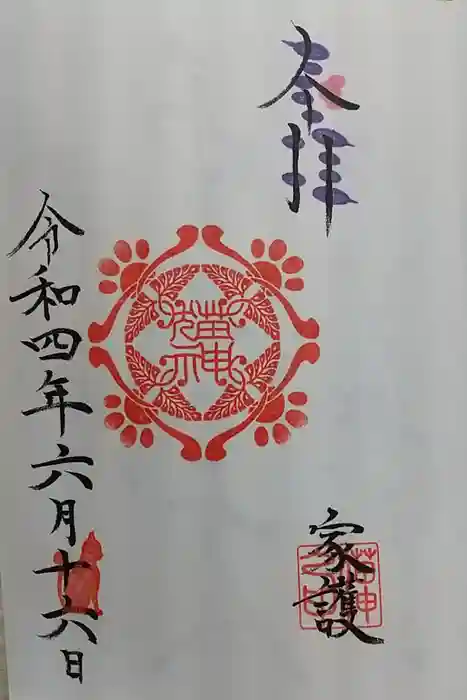 奉拝
家護
猫神
令和四年六月十六日